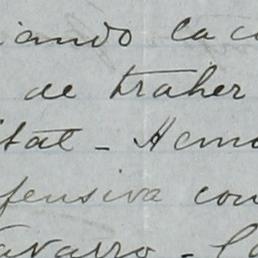 iando la c
de traher
itat - Hem
fensiva con
avarro - La